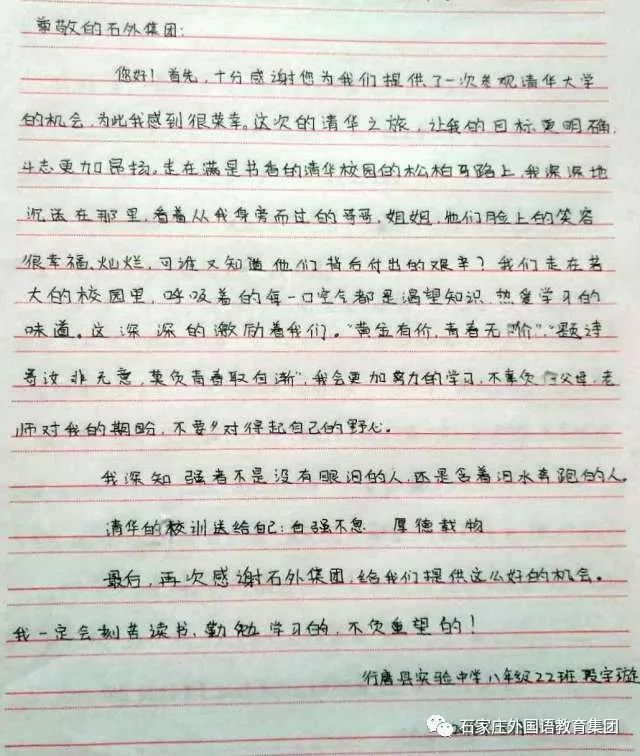 尊敬的石外集团:
您好！首先，十分感谢您为我们提供了一次参观清华大学
的机会,为此我感到很荣幸。这次的清华之旅，让我的目标更明确,
斗志更加昂扬。走在满是书香的清华校园的松柏马路上,我深深地
沉迷在那里,看着从我身旁而过的哥哥,姐姐,他们脸上的笑容
很幸福、灿烂,可谁又知道他们背后付出的艰辛？我们走在若
大的校园里，呼吸着的每一口空气都是渴望知识、热爱学习的
味道。这深深的激励着我们。“黄金有价,青春无价”,“题诗
寄汝非无意,莫负青春取自惭”,我会更加努力的学习,不辜负父母,老
师对我的期盼,不要对得起自己的野心。
我深知 强者不是没有眼泪的人,还是含着泪水奔跑的人。
清华的校训送给自己:自强不息 厚德载物
最后,再次感谢石外集团,给我们提供这么好的机会。
我一定会刻苦读书,勤勉学习的,不负重望的！
行唐县实验中学八年级22班 段宇璇
石家庄外国语教育集团